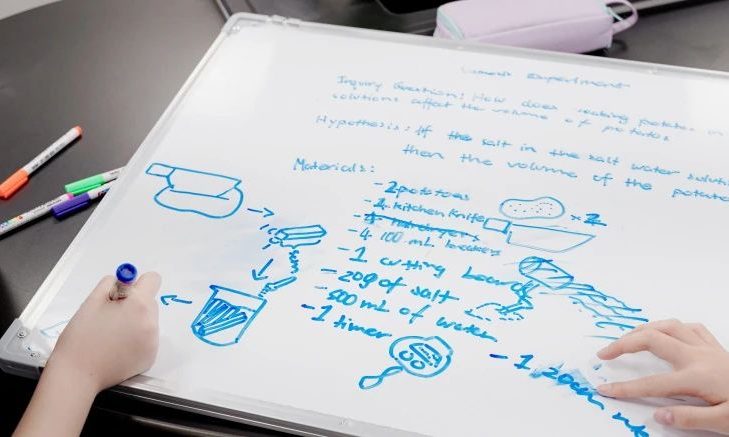 Experiment
Inquiry Question: How does soaking potatoes in
solutions affect the volume of potatoes
Hypothesis: If the salt in the salt water soluti
then the volume of the potato
Materials:
- 2 potatoes
- 1 kitchen knife
- 4 100 mL beakers
- 1 cutting board
- 20g of salt
- 500 mL of water
- 1 timer
x 2
- 1 20cm